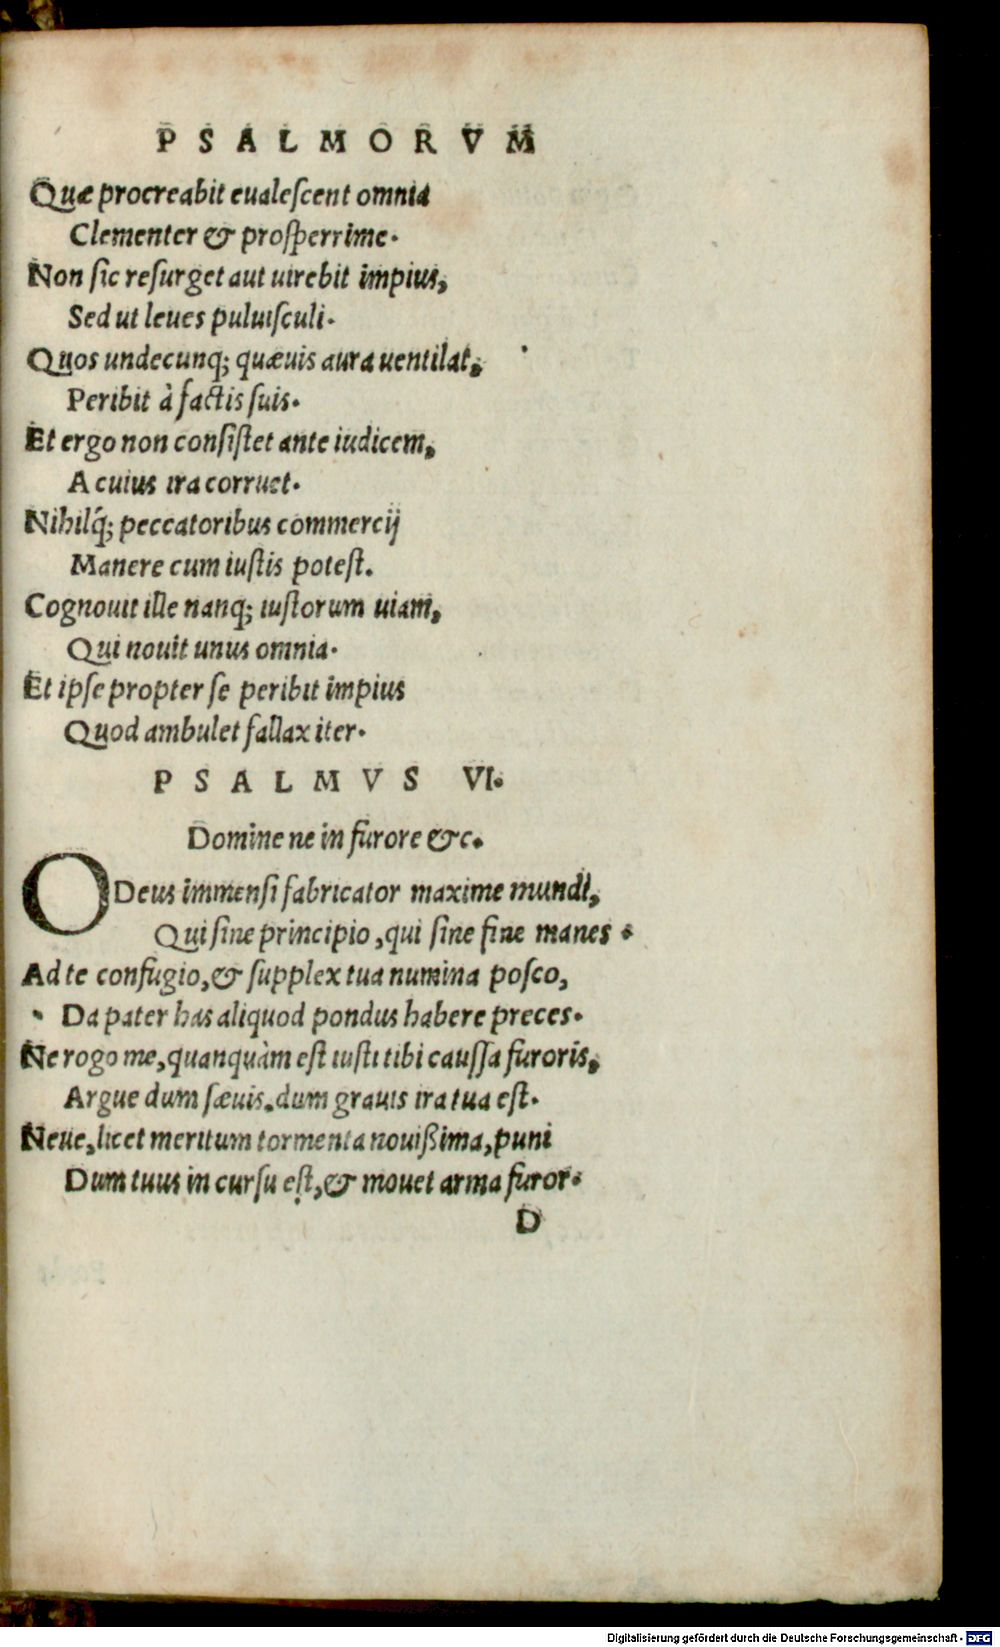 PSALMORVM
Quæ procreabit eualeſcent omnia
Clementer & proſperrime.
Non ſic reſurget aut uirebit impius,
Sed ut leues puluiſculi.
Quos undecunq; quæuis aura uentilat,
Peribit à factis ſuis.
Et ergo non conſiſtet ante iudicem,
A cuius ira corruet.
Nihilq́; peccatoribus commercij
Manere cum iuſtis poteſt.
Cognouit ille nanq; iuſtorum uiam,
Qui nouit unus omnia.
Et ipſe propter ſe peribit impius
Quod ambulet fallax iter.
PSALMVS VI.
Domine ne in furore &c.
O Deus immenſi fabricator maxime mundi,
Qui ſine principio, qui ſine fine manes.
Ad te confugio, & ſupplex tua numina poſco,
Da pater has aliquod pondus habere preces.
Ne rogo me, quanquàm eſt iuſti tibi cauſſa furoris,
Argue dum ſæuis, dum grauis ira tua eſt.
Neue, licet meritum tormenta nouißima, puni
Dum tuus in curſu eſt, & mouet arma furor.
D
Digitalisierung gefördert durch die Deutsche Forschungsgemeinschaft - DFG